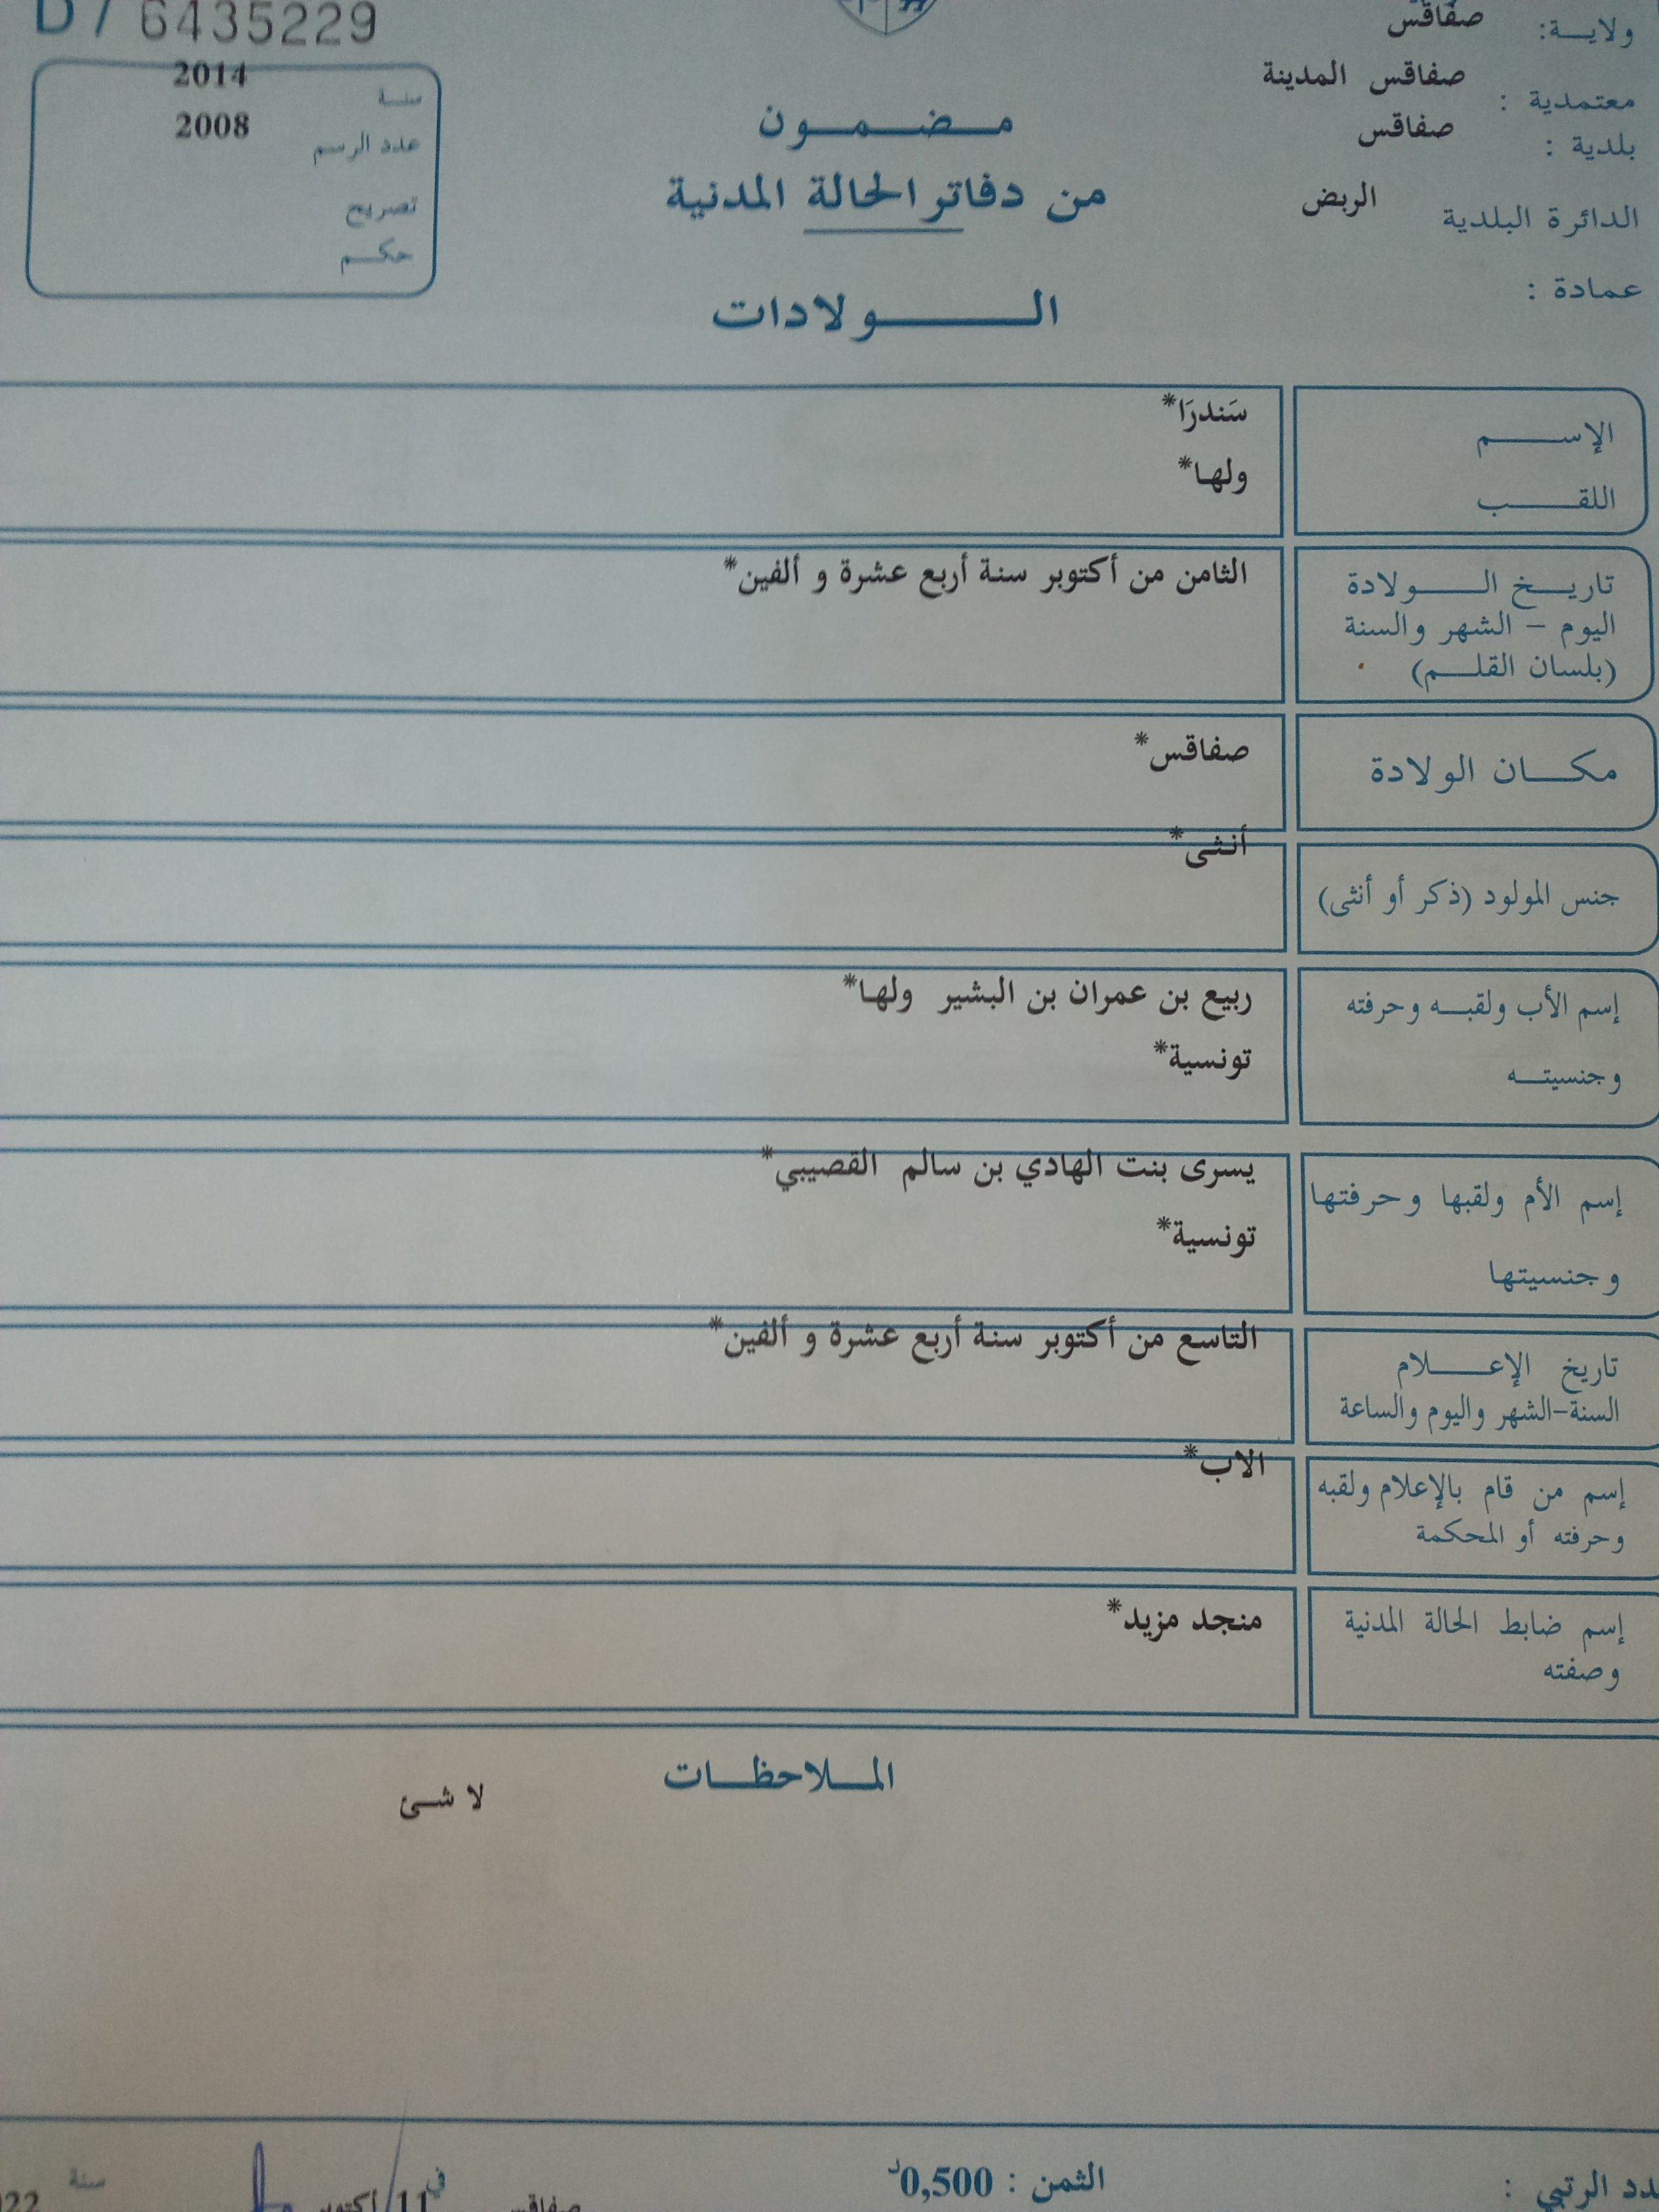 D7 6435229
ولايـــة: صفاقس
معتمدية : صفاقس المدينة
بلدية : صفاقس
الدائرة البلدية الربض
عمادة :
سنـة 2014
عدد الرسم 2008
تصريح
حكـم
مـضـمـون
من دفاتر الحالة المدنية
الــولادات
الإســـم سَندرَا*
اللقــب ولها*
تاريـخ الــولادة الثامن من أكتوبر سنة أربع عشرة و ألفين*
اليوم – الشهر والسنة
(بلسان القلـم)
مكــان الولادة صفاقس*
جنس المولود (ذكر أو أنثى) أنثى*
إسم الأب ولقبـه وحرفته ربيع بن عمران بن البشير ولها*
وجنسيتـه تونسية*
إسم الأم ولقبها وحرفتها يسرى بنت الهادي بن سالم القصيبي*
وجنسيتها تونسية*
تاريخ الإعــلام التاسع من أكتوبر سنة أربع عشرة و ألفين*
السنة-الشهر واليوم والساعة
إسم من قام بالإعلام ولقبه الاب*
وحرفته أو المحكمة
إسم ضابط الحالة المدنية منجد مزيد*
وصفته
المـلاحظـات
لا شئ
الثمن : 0,500د
صفاقس في 11 أكتوبر سنة